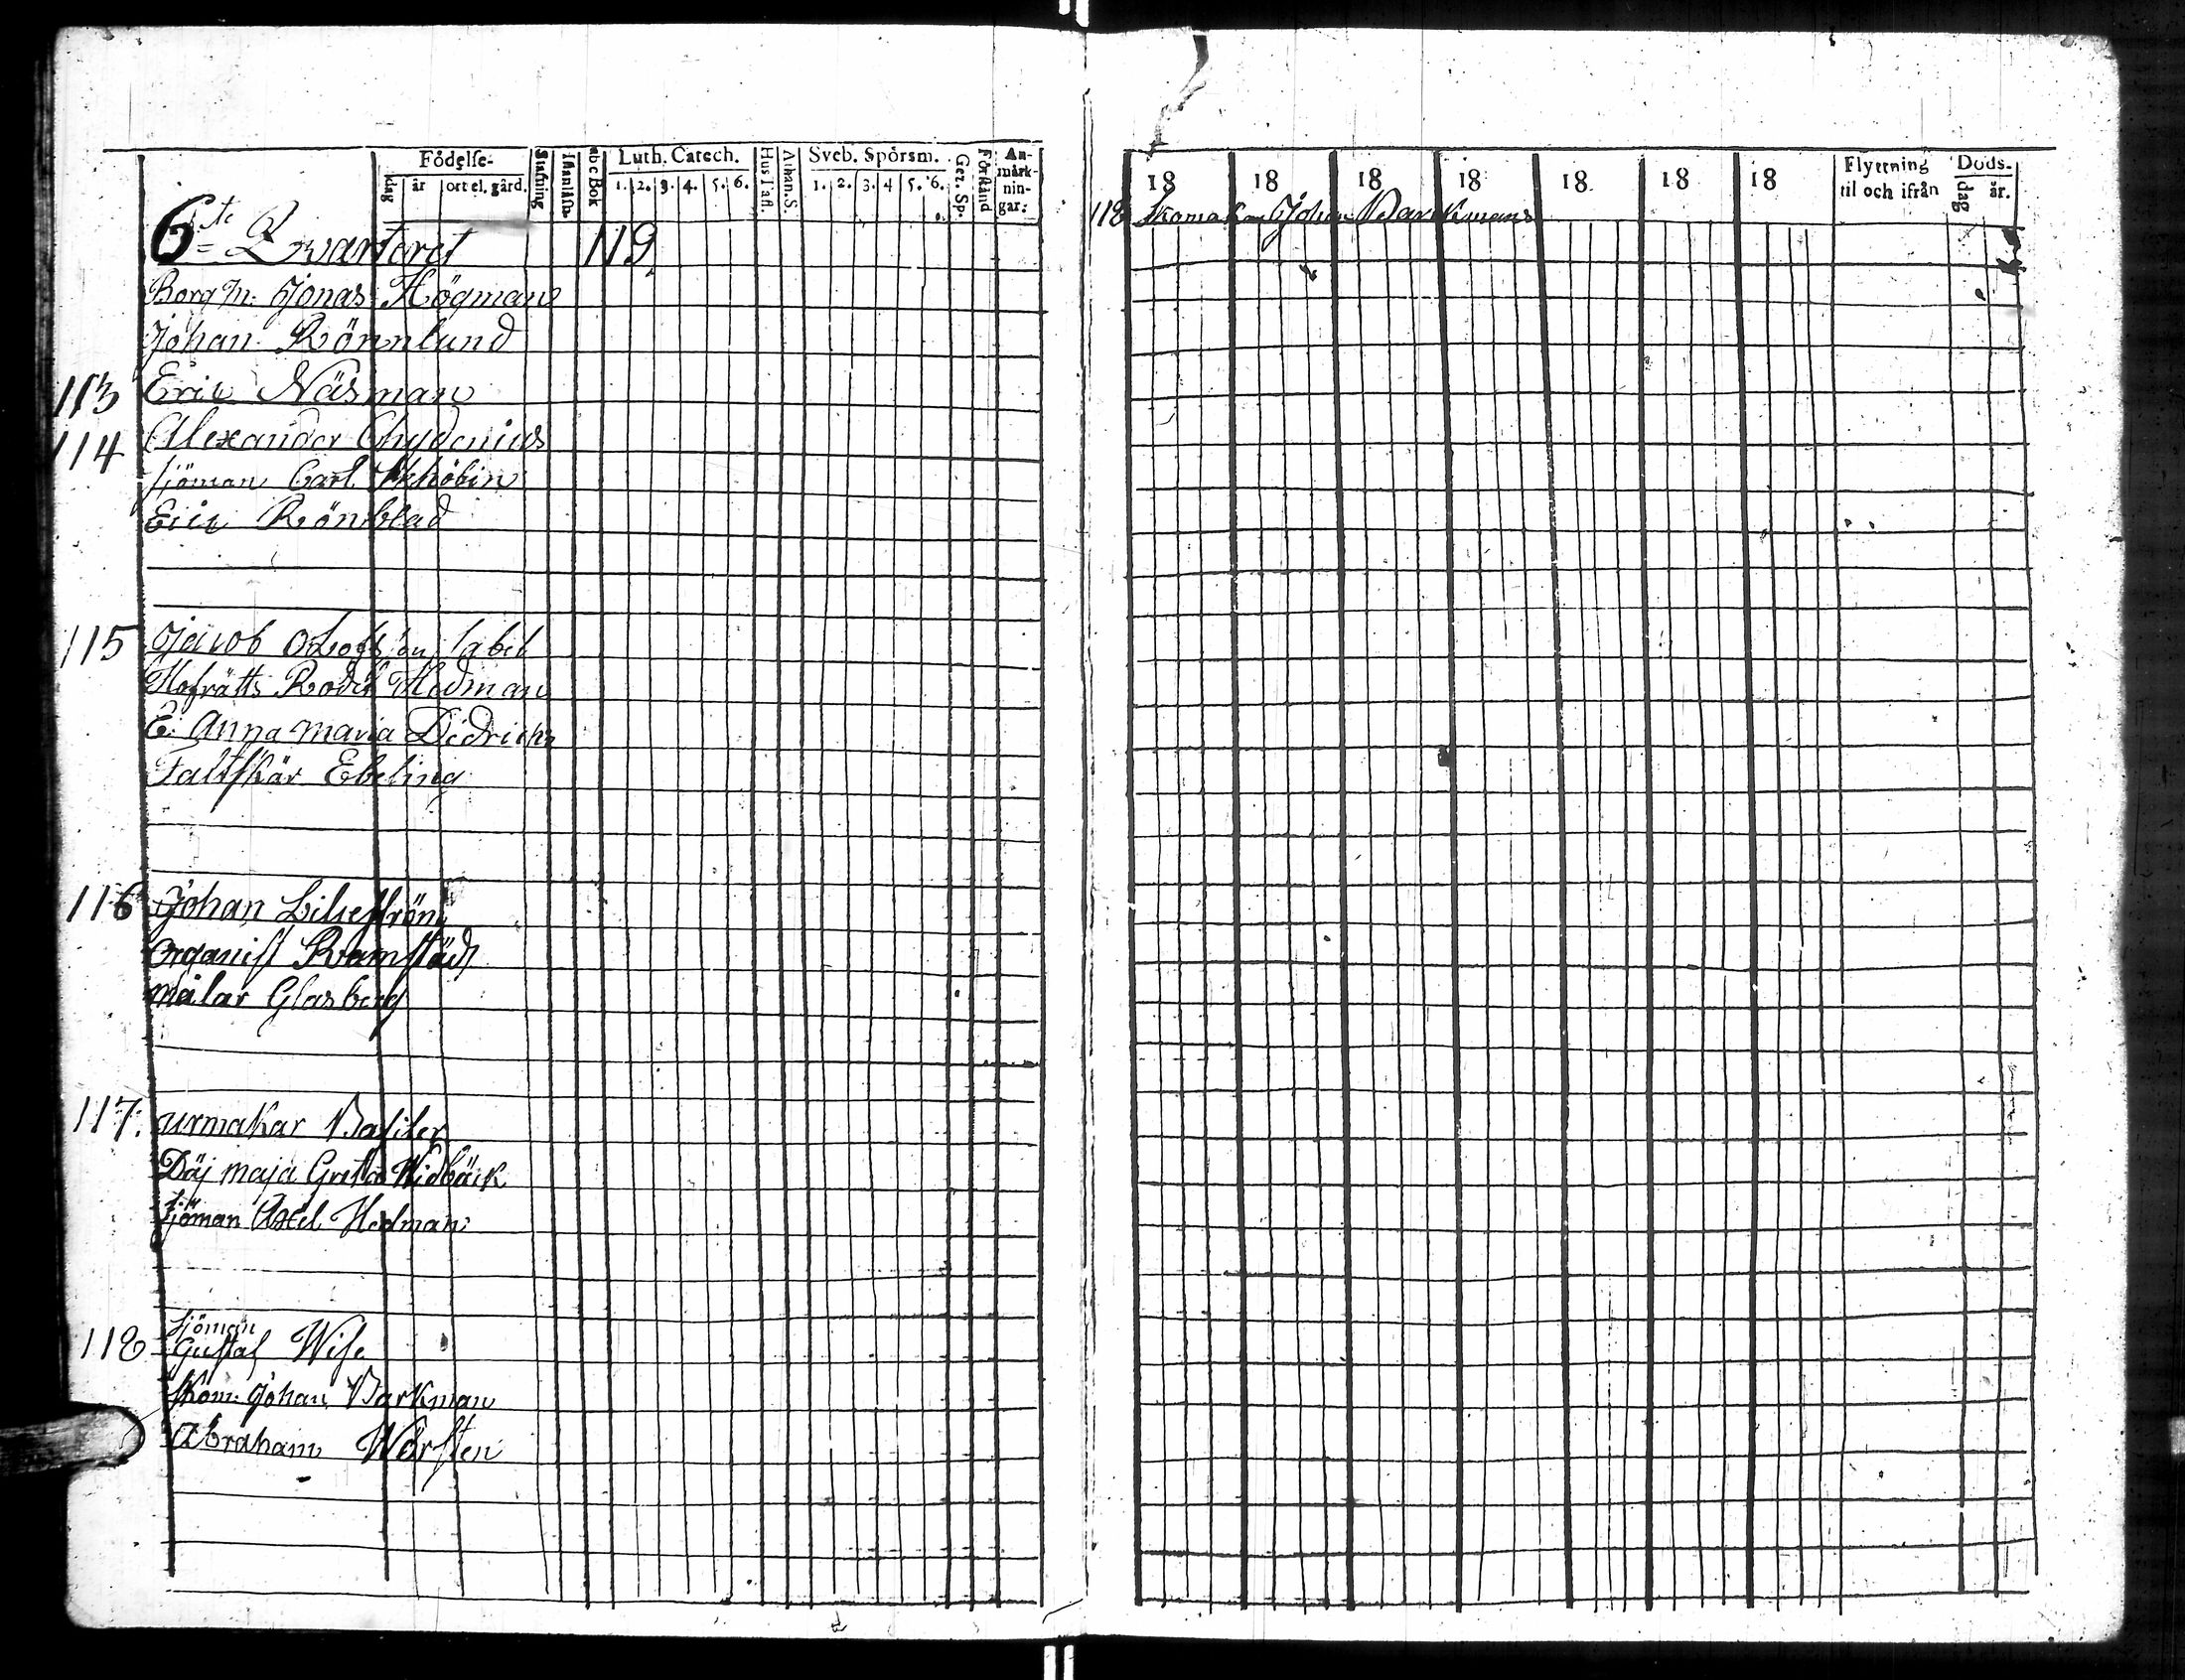 Födelse-
dag år ort el. gård.
Stafning
Innanläsn.
abc Bok
Luth. Catech.
1. 2. 3. 4. 5. 6.
Hus Tafl.
Athan. S.
Sveb. Spörsm.
1. 2. 3. 4 5. 6.
Gez. Sp.
Förstånd
An-
märk-
nin-
gar:
6te Qwarteret 119
Borg m. Jonas Högman
Johan Rönnlund
113 Eric Näsman
114 Alexander Chydenius
sjöman Carl
Eric Rönblad
115 Jacob Olofsson
Hofrätts Hedman
E. Anna Maria Didrichs
Fältskär Ebeling
116 Johan Liljeström
Organist
målar Glasberg
117. urmakar Basilier
Däj maja Greta Widbäck
Sjöman Axel Hedman
118 Sjöman
Gustaf Wise
skom: Johan Barkman
Abraham
18 18 18 18 18 18 18
Flyttning
til och ifrån
Döds-
dag år.
118 Skomakar Johan Barckmans